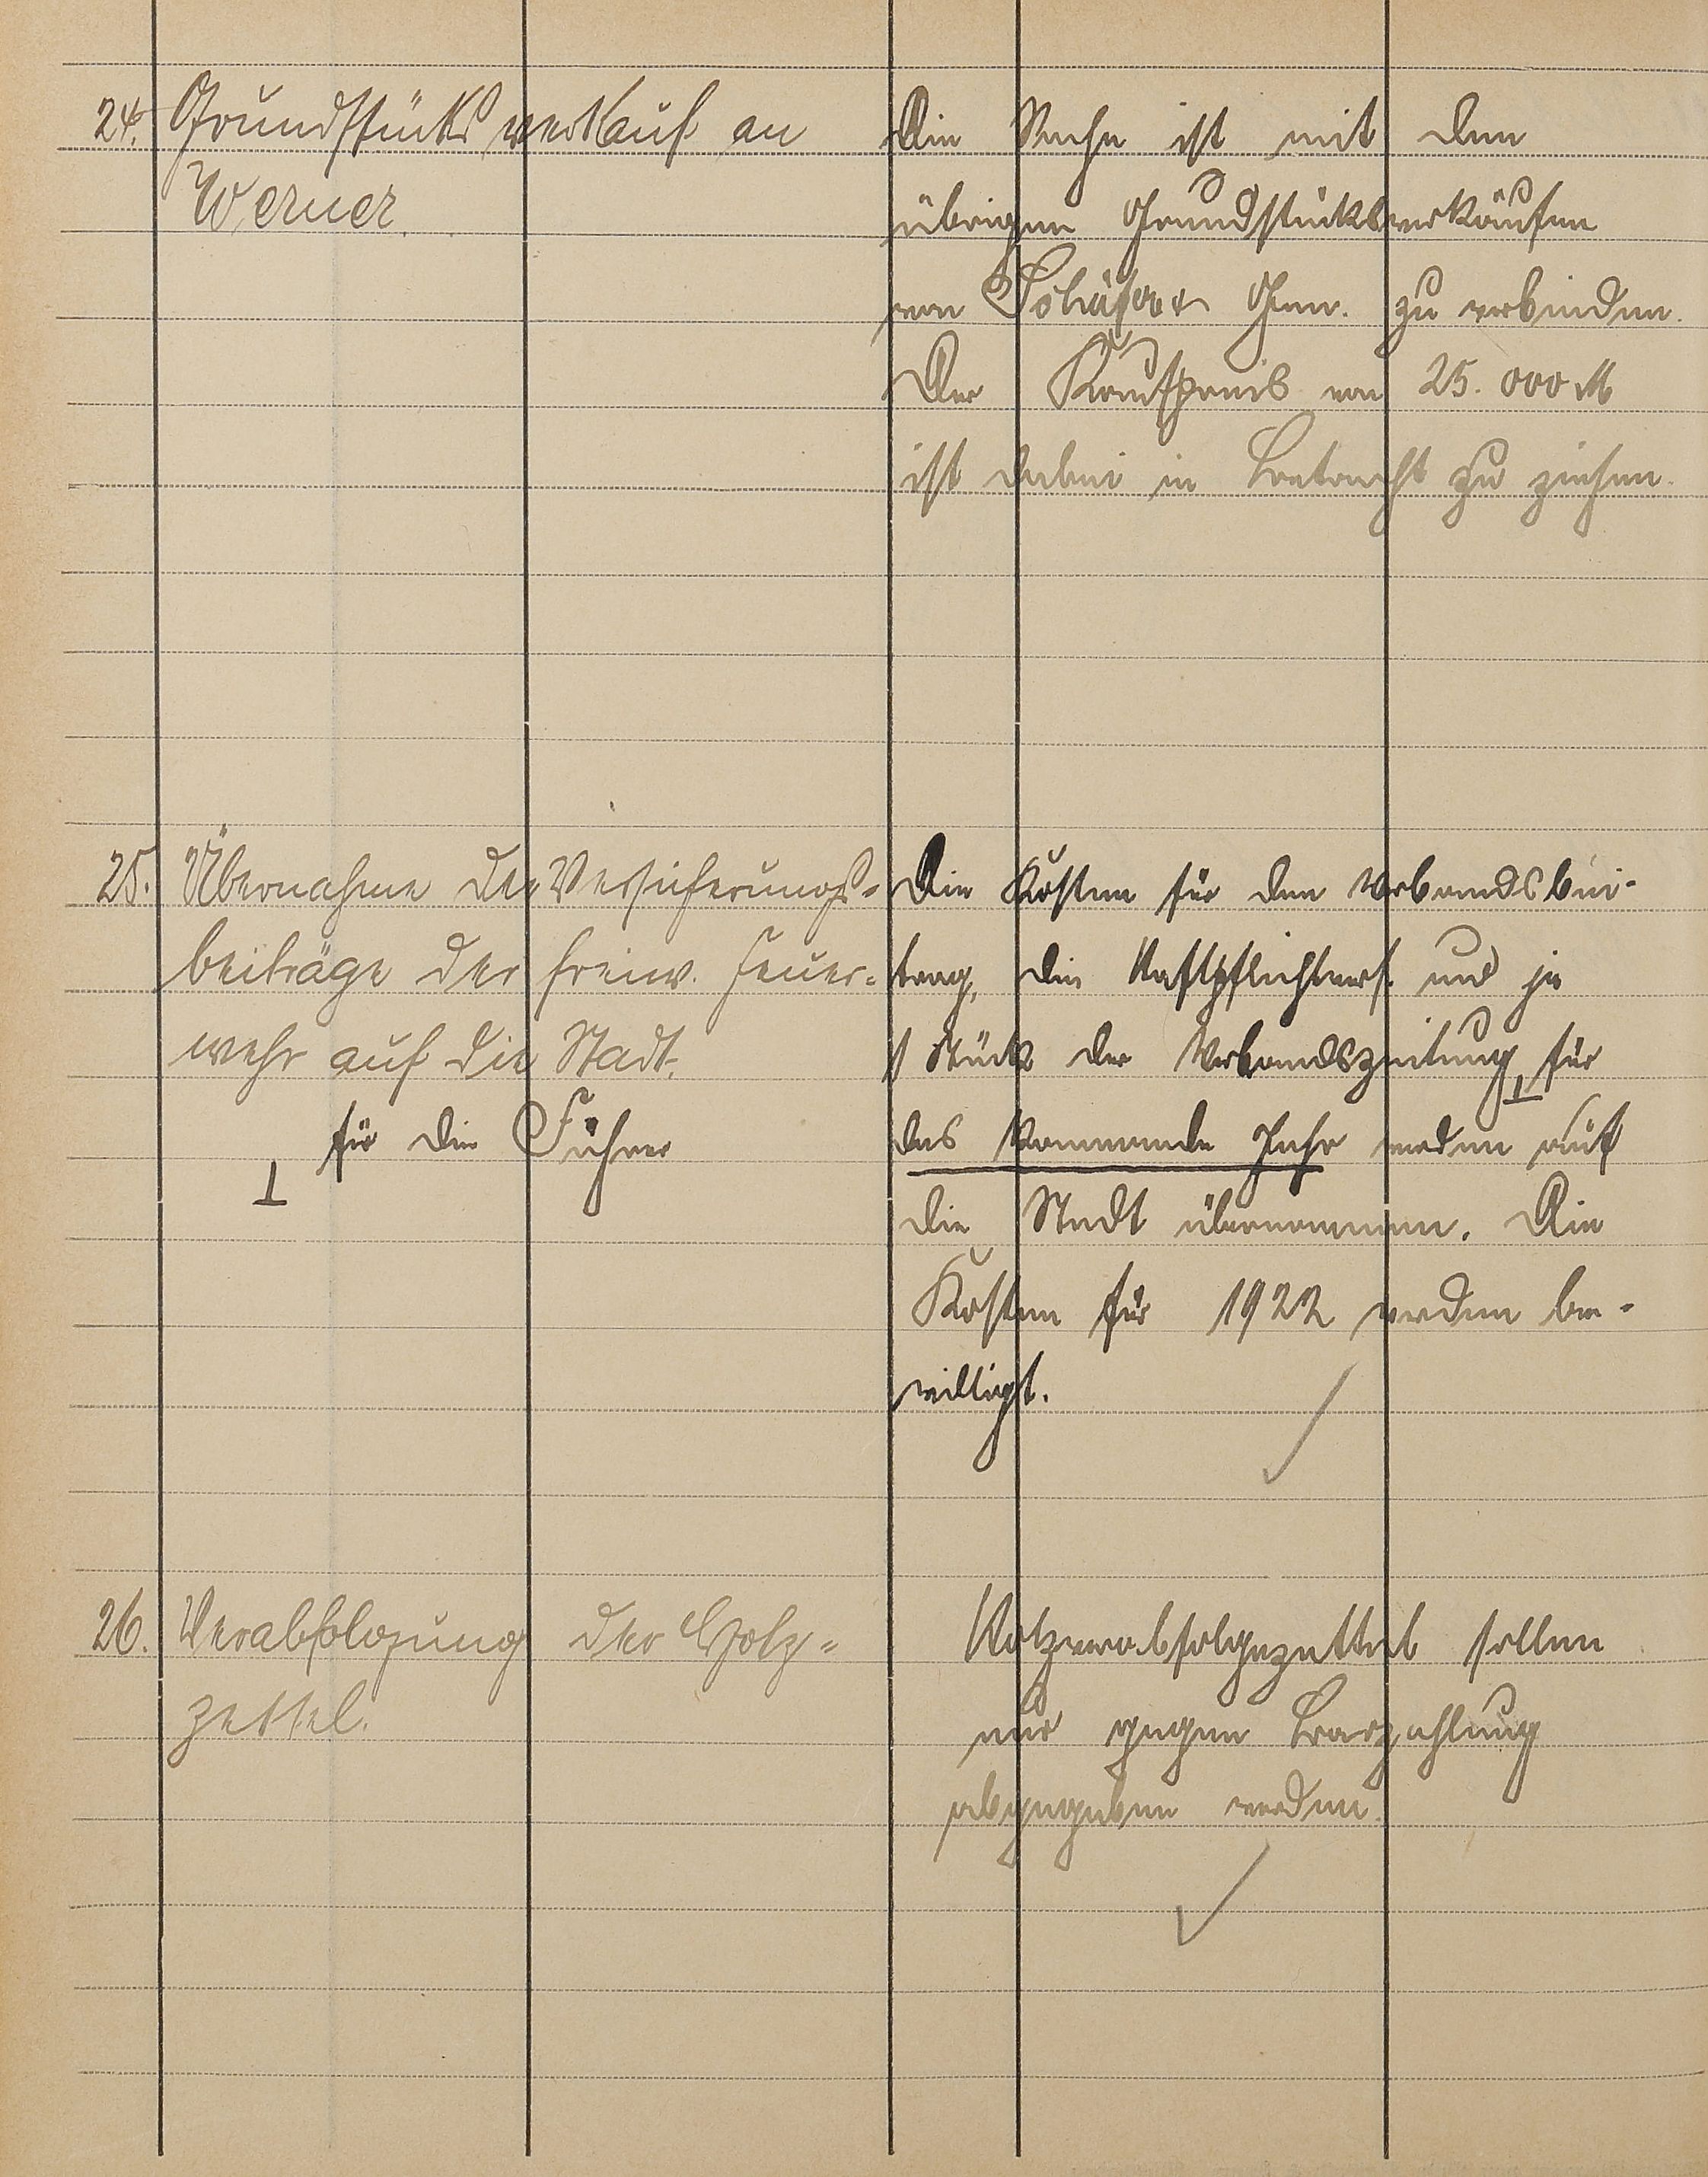 24. Grundstücksverkauf an
Werner.
Die Sache ist mit den
übrigen Grundstücksverkäufen
von Schäfer & Gen. zu verbinden.
Der Kaufpreis von 25.000 M
ist dabei in Betracht zu ziehen.
25. Übernahme der Versicherungs-
beiträge der freiw. Feuer-
wehr auf die Stadt.
⊥ für die Führer
Die Kosten für den Verbandsbei-
trag, die Haftpflichtvers. und je
1 Stück der Verbandszeitung ⊥ für
das kommende Jahr werden auf
die Stadt übernommen. Die
Kosten für 1922 werden be-
willigt.
26. Verabfolgung der Holz-
zettel.
Holzverabfolgezettel sollen
nur gegen Barzahlung
abgegeben werden.